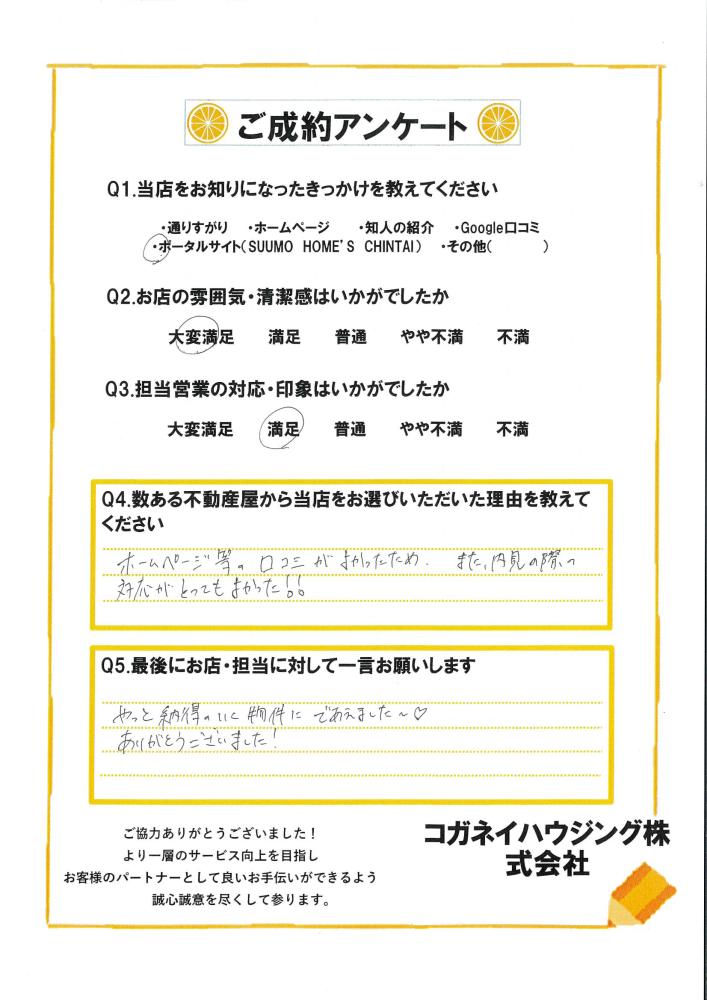 ご成約アンケート
Q1.当店をお知りになったきっかけを教えてください
・通りすがり ・ホームページ ・知人の紹介 ・Google口コミ
・ポータルサイト(SUUMO HOME'S CHINTAI) ・その他( )
Q2.お店の雰囲気・清潔感はいかがでしたか
大変満足 満足 普通 やや不満 不満
Q3.担当営業の対応・印象はいかがでしたか
大変満足 満足 普通 やや不満 不満
Q4.数ある不動産屋から当店をお選びいただいた理由を教えて
ください
ホームページ等の口コミがよかったため. また、内見の際の
対応がとってもよかった!!
Q5.最後にお店・担当に対して一言お願いします
やっと納得のいく物件にであえました〜♡
ありがとうございました!
ご協力ありがとうございました！
より一層のサービス向上を目指し
お客様のパートナーとして良いお手伝いができるよう
誠心誠意を尽くして参ります。
コガネイハウジング株
式会社